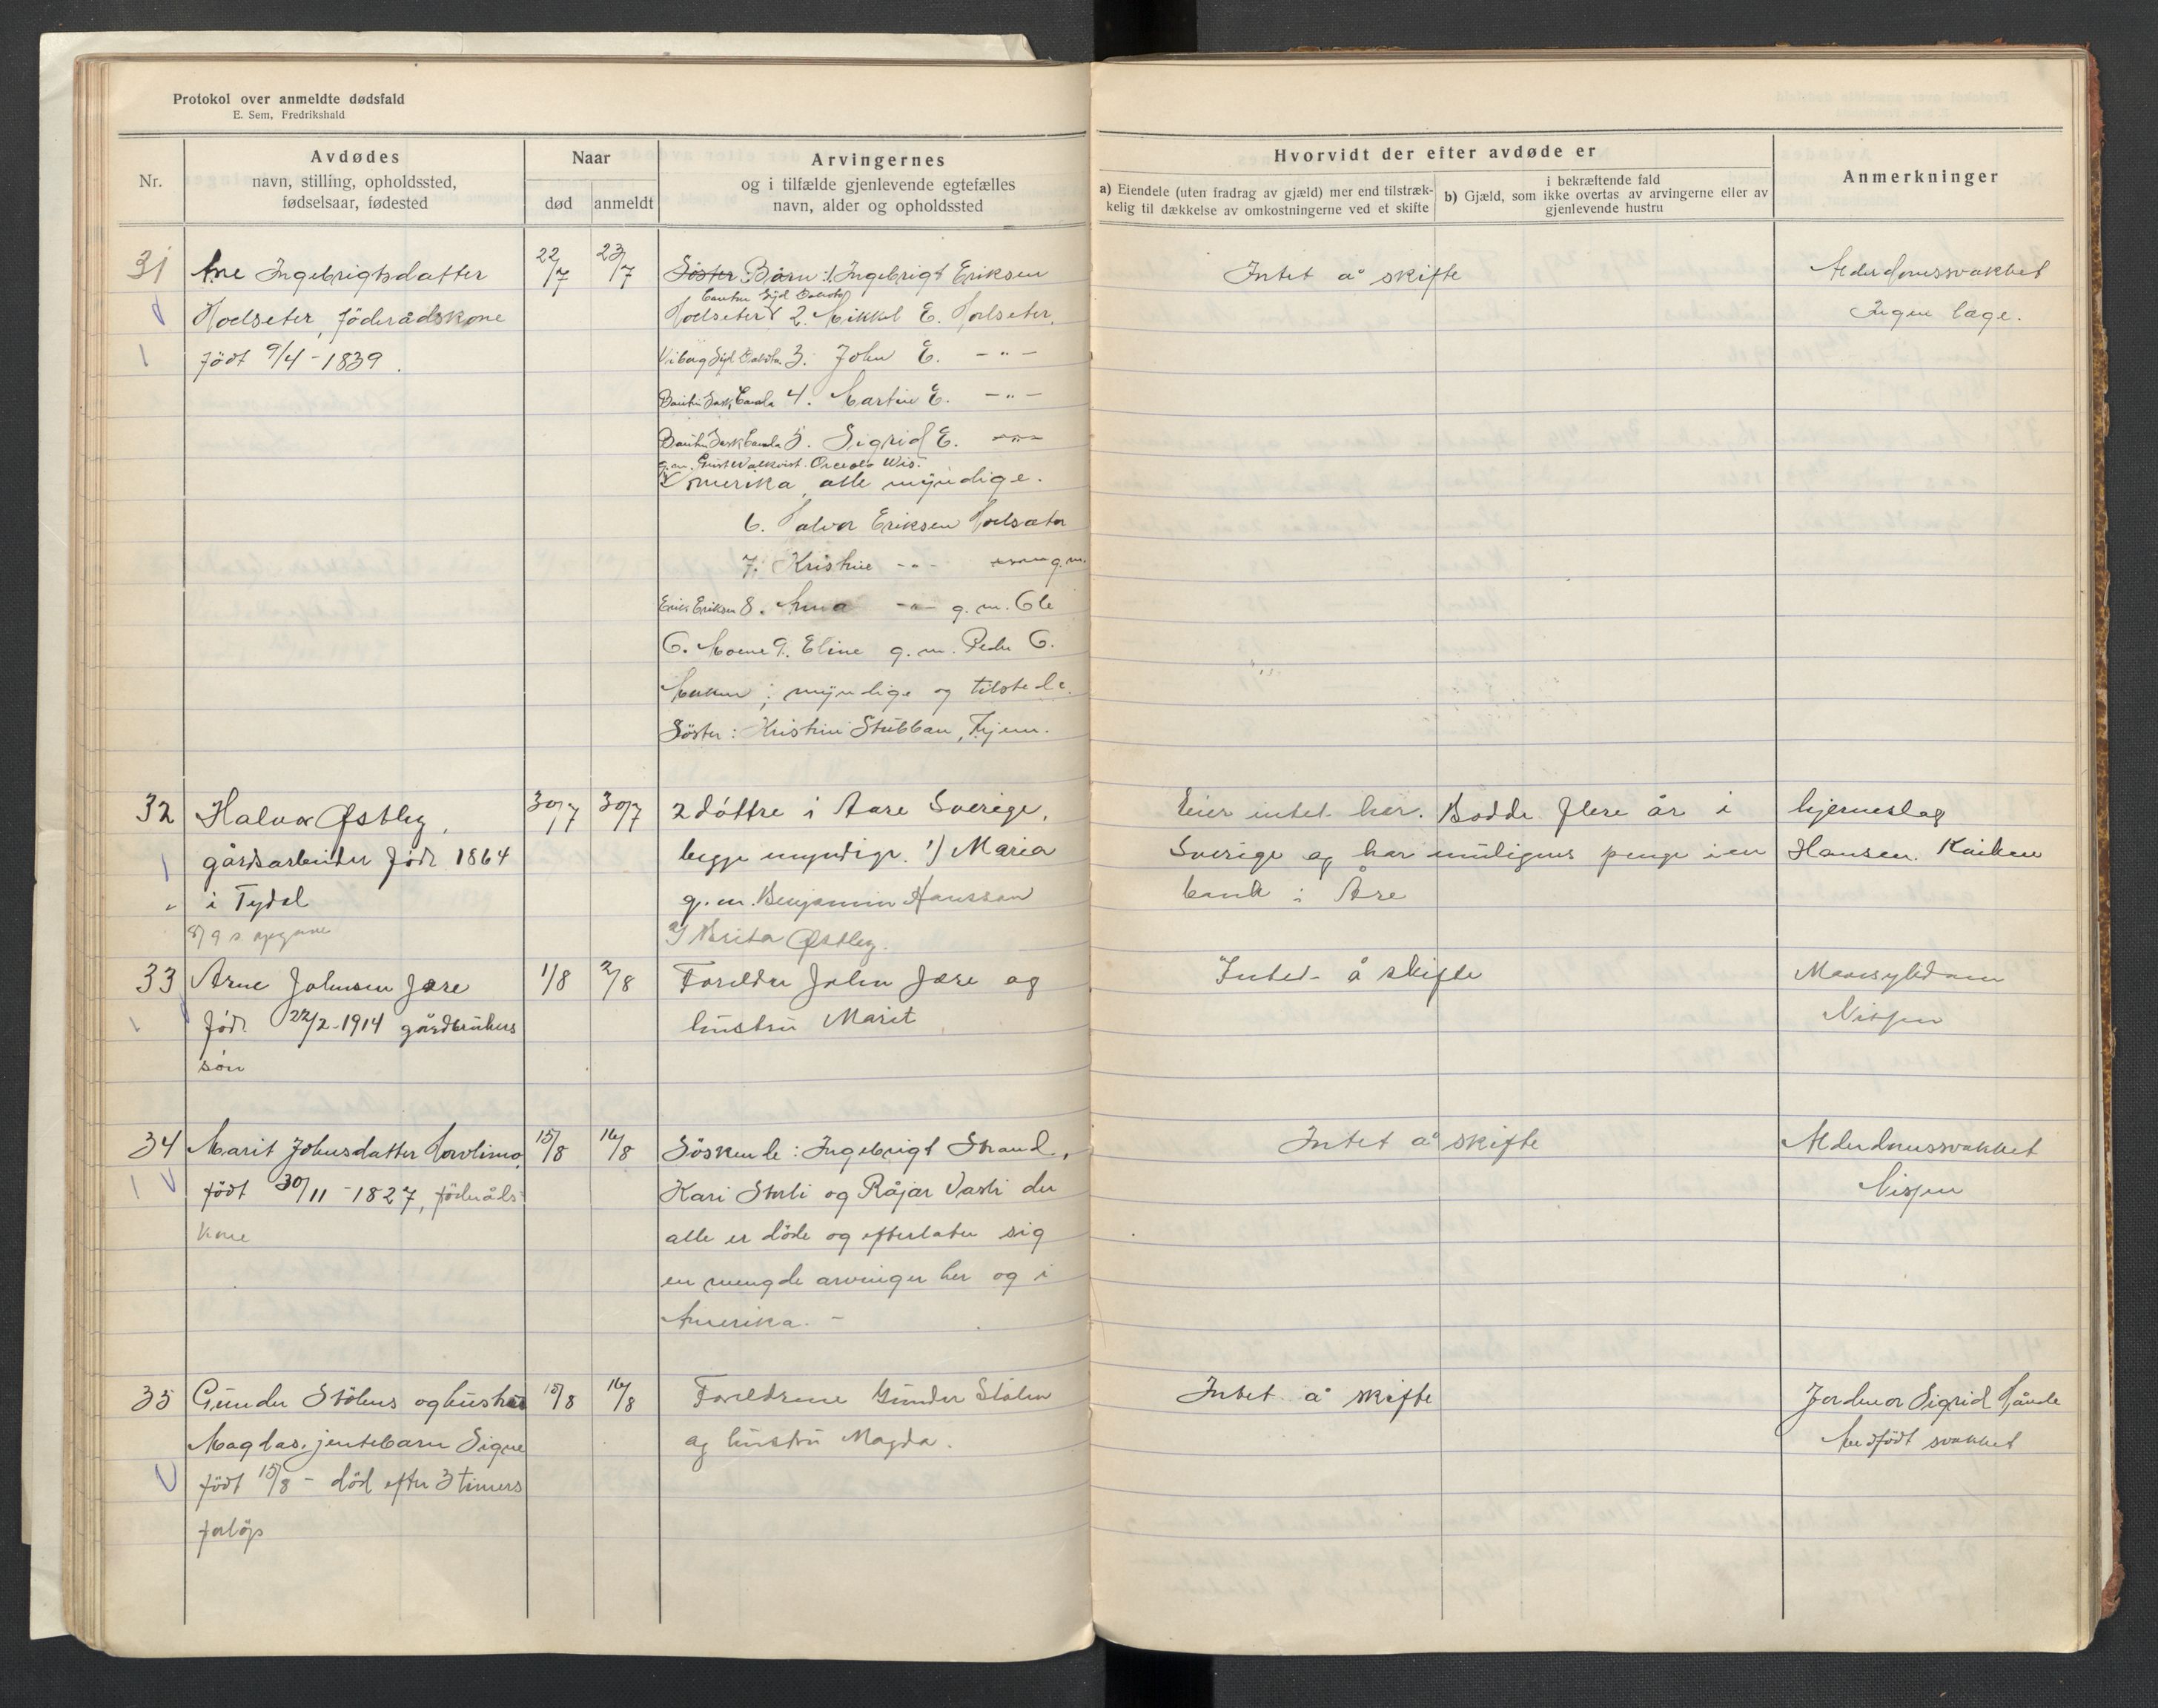 Protokol over anmeldte dødsfald
E. Sem, Fredrikshald
Nr.
Avdødes
navn, stilling, opholdssted,
fødselsaar, fødested
Naar
død
anmeldt
Arvingernes
og i tilfælde gjenlevende egtefælles
navn, alder og opholdssted
Hvorvidt der efter avdøde er
a) Eiendele (uten fradrag av gjæld) mer end tilstræk-
kelig til dækkelse av omkostningerne ved et skifte
i bekræftende fald
b) Gjæld, som ikke overtas av arvingerne eller av
gjenlevende hustru
Anmerkninger
31
Ane Ingebrigtsdatter
Hoelseter, föderådskone
födt 9/4 - 1839.
22/7
23/7
Söster Börn: 1. Ingebrigt Eriksen
Hoelseter 2. Mikkel E. Hoelseter,
3. John E. - " -
4. Martin E. - " -
5. Sigrid E. - " -
Amerika, alle myndige.
6. Halvor Eriksen Hoelseter
7. Kristine - " - g.m.
Erik Eriksen 8. Anna - " - g. m. Ole
O. Moene 9. Eline g. m. Peder O.
; myndige og tilstede.
Söster: Kristine Stubban, hjem.
Intet å skifte
Alderdomssvakhet
Ingen læge.
32
Halvor Østby,
gårdsarbeider född 1864
i Tydal
30/7 17
30/7
2 döttre i Aare Sverige,
begge myndige. 1) Maria
g. m. Benjamin Hansson
2) Brita Østby.
Eier intet her. Bodde flere år i
Sverige og har muligens penge i en
bank i Åre
hjerneslag
Hansen.
33
Arne Johnsen Jære
född 22/2-1914 gårdbrukers
sön
1/8
2/8
Foreldre John Jære og
hustru Marit
Intet å skifte
Nissen
34
Marit Johnsdatter
födt 30/11 - 1827, föderåds-
kone
15/8
16/8
Söskende: Ingebrigt Strand,
Kari Storli og Råjar der
alle er döde og efterlater sig
en mengde arvinger her og i
Amerika. -
Intet å skifte
Alderdomssvakhet
Nissen
35
Gunder Stölens og hustru
Magdas, jentebarn Signe
födt 15/8 - död efter 3 timers
forlöp
15/8
16/8
Foreldrene Gunder Stölen
og hustru Magda.
Intet å skifte
Jordmor Sigrid
Medfödt svakhet